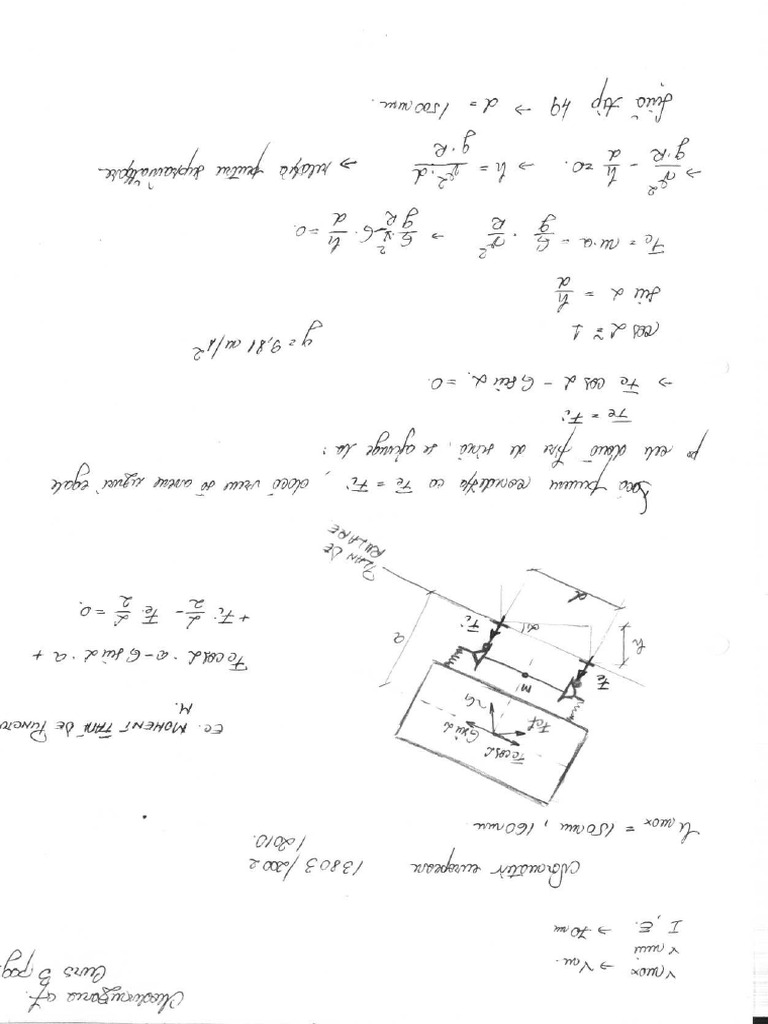 Curs 3 pag.
Vmax → Vm.
Vmin
I, E. → 70 mm
Normativ european 13803/2002
/2010.
h max = 150 mm, 160 mm
Ec. MOMENT FAȚĂ DE PUNCTU
M.
Fc cos α · a - G sin α · a +
+ Fi · d/2 - Fe · d/2 = 0.
Fc cos α
Fcf
G sin α
G
M
Fe
Fi
h
α
d
a
PLAN DE
RULARE
Dacă punem condiția ca Fe = Fi, dacă vrem să avem uzuri egale
pe cele două fire de șină, se ajunge la:
Fe = Fi
→ Fc cos α - G sin α = 0.
cos α ≅ 1
g = 9,81 m/s²
sin α = h/d
Fc = m·a = G/g · v²/R → G/g · v²/R - G · h/d = 0.
→ v²/(g·R) - h/d = 0. → h = v²·d/(g·R) → relația pentru supraînălțare
Șină tip 49 → d = 1500 mm.